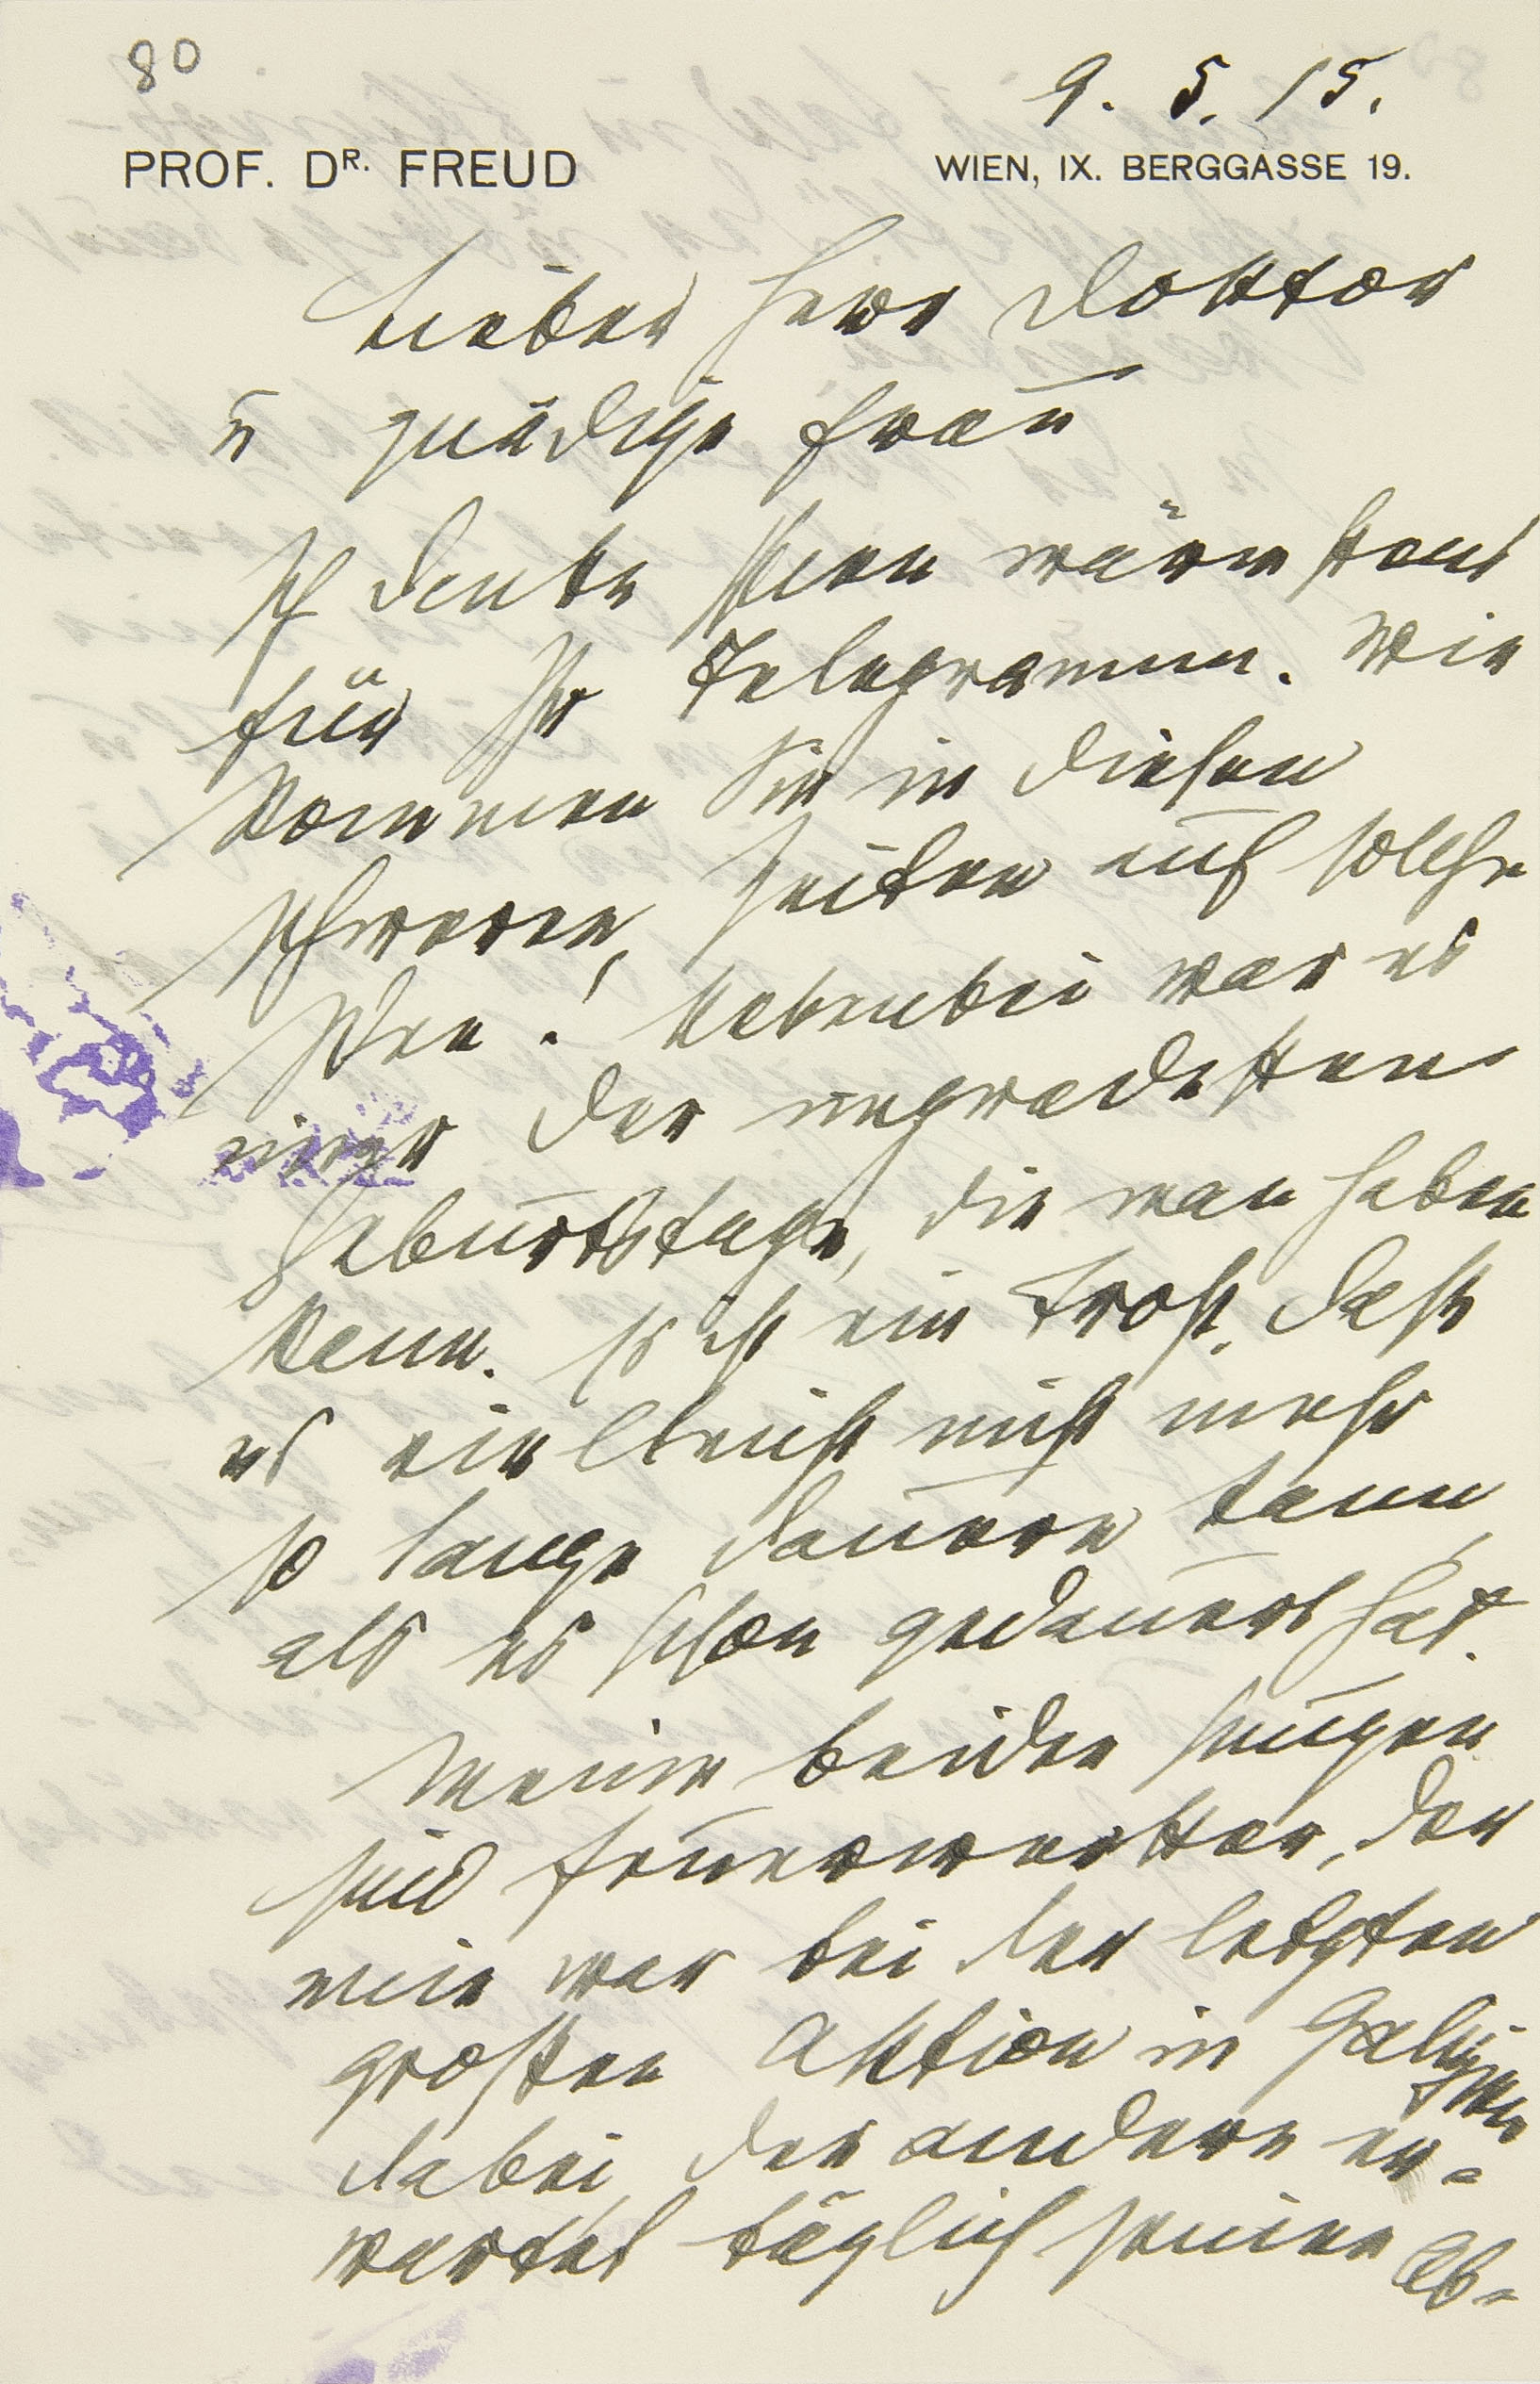 80
9. 5. 15.
PROF. DR. FREUD
WIEN, IX. BERGGASSE 19.
Lieber Herr Doktor
u gnädige Frau
Ich danke Ihnen wärmstens
für Ihr Telegramm. Wie
kommen Sie in diesen
schweren Zeiten auf solche
Idee! Nebenbei war es
einer der ungradesten
Geburtstage, die man haben
kann. Es ist ein Trost, daß
es vielleicht nicht mehr
so lange dauern kann,
als es schon gedauert hat.
Meine beiden Jungen
sind Feuerwerker, der
eine war bei der letzten
großen Aktion in Galizien
dabei, der andere er-
wartet täglich seinen Ab-